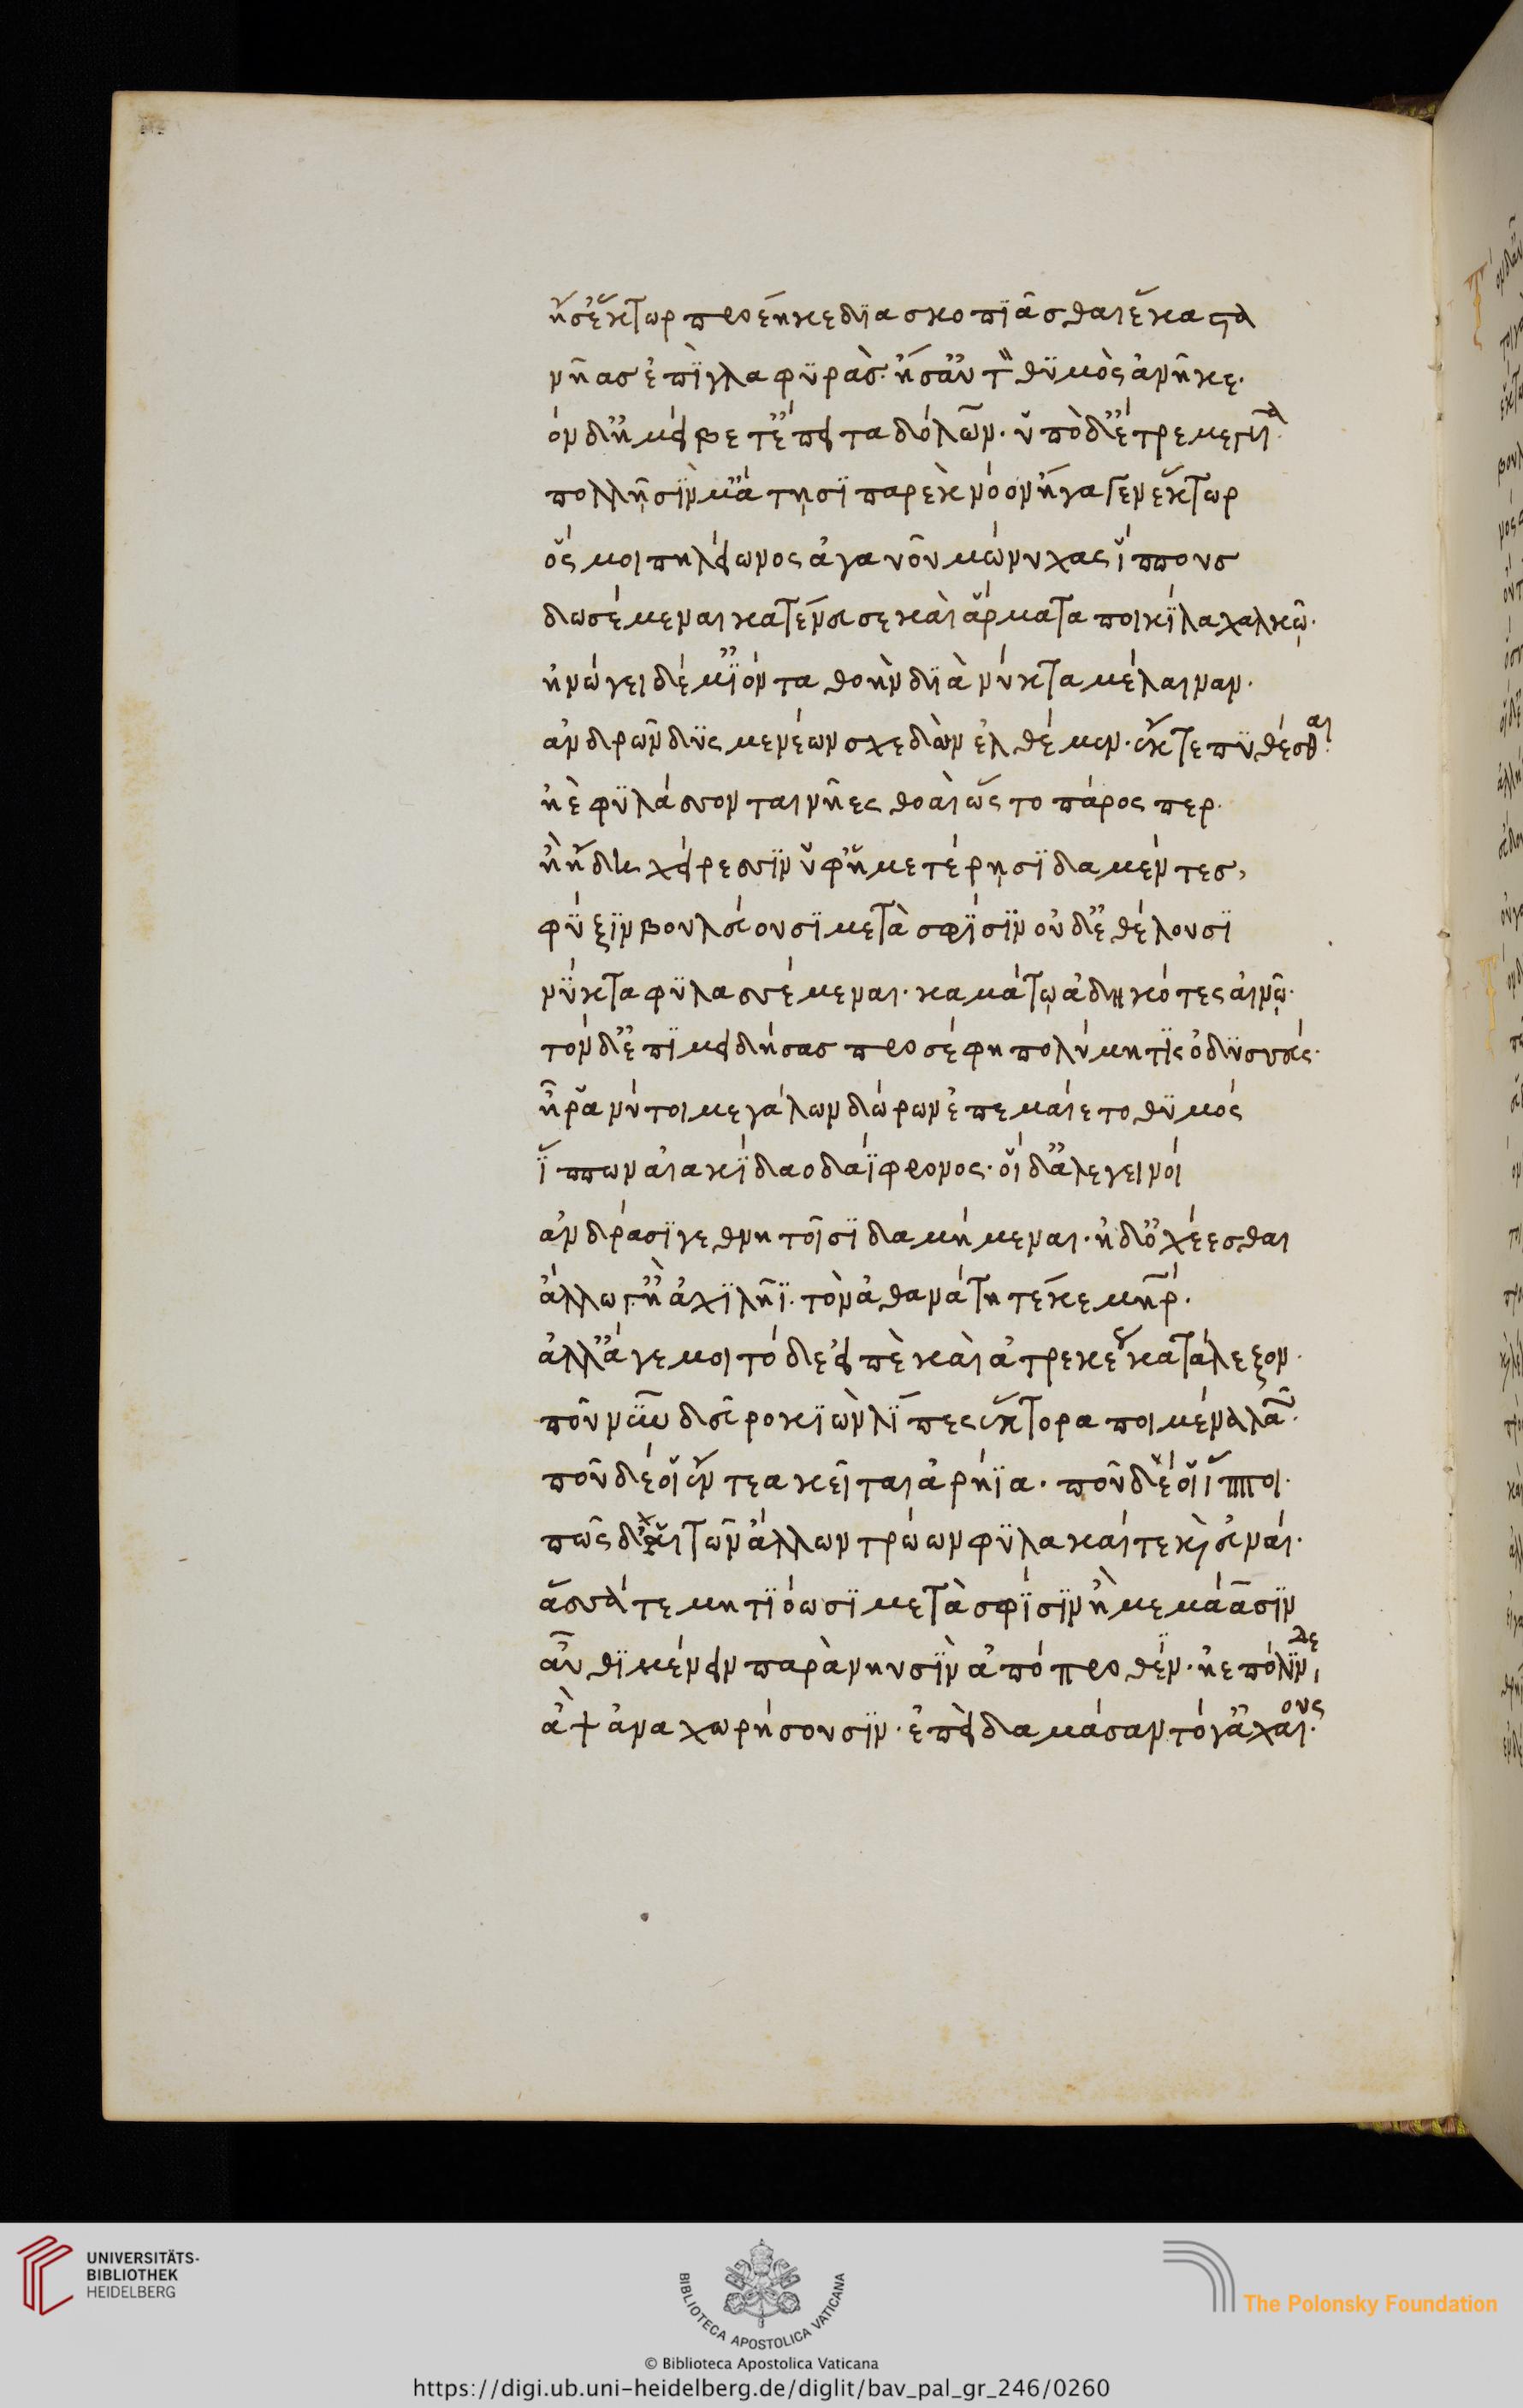 ἤ σ' ἕκτωρ προέηκε διασκοπιᾶσθαι ἕκαστα
νῆας ἐπὶ γλαφυράς. ἤ σ' αὐτ θυμὸς ἀνῆκε.
τὸν δ' ἠμείβετ' ἔπειτα δόλων. ὑπὸ δ' ἔτρεμε γυῖα.
πολλῇσίν μ' ἄτῃσι παρὲκ νόον ἤγαγεν ἕκτωρ
ὅς μοι πηλείωνος ἀγαυοῦ μώνυχας ἵππους
δωσέμεναι κατένευσε καὶ ἅρματα ποικίλα χαλκῷ.
ἠνώγει δέ μ' ἰόντα θοὴν διὰ νύκτα μέλαιναν.
ἀνδρῶν δυσμενέων σχεδὸν ἐλθέμεν. ἔκ τε πυθέσθαι.
ἠὲ φυλάσσονται νῆες θοαὶ ὡς τὸ πάρος περ.
ἢ ἤδη χείρεσσιν ὑφ' ἡμετέρῃσι δαμέντες,
φύξιν βουλεύουσι μετὰ σφίσιν οὐδ' ἐθέλουσι
νύκτα φυλασσέμεναι. καμάτῳ ἀδηκότες αἰνῷ.
τὸν δ' ἐπιμειδήσας προσέφη πολύμητις ὀδυσσεύς.
ἦ ῥά νύ τοι μεγάλων δώρων ἐπεμαίετο θυμός
ἵππων αἰακίδαο δαΐφρονος. οἱ δ' ἀλεγεινοί
ἀνδράσι γε θνητοῖσι δαμήμεναι. ἠδ' ὀχέεσθαι
ἄλλῳ γ' ἢ ἀχιλῆϊ. τὸν ἀθανάτη τέκε μηρ.
ἀλλ' ἄγε μοι τόδε εἰπὲ καὶ ἀτρεκέως κατάλεξον.
ποῦ νῦν δεῦρο κιὼν λίπες ἕκτορα ποιμένα λαῶν.
ποῦ δέ οἱ ἔντεα κεῖται ἀρήϊα. ποῦ δέ οἱ ἵπποι.
πῶς δ' αἱ τῶν ἄλλων τρώων φυλακαί τε κὶ εὐναί.
ἅσσά τε μητιόωσι μετὰ σφίσιν ἢ μεμάασιν
αὖθι μένειν παρὰ νηυσὶν ἀπόπροθεν. ἠὲ πόλινδε,
ἂψ ἀναχωρήσουσιν. ἐπεὶ δαμάσαντό γ' ἀχαιούς.
UNIVERSITÄTS-
BIBLIOTHEK
HEIDELBERG
BIBLIOTECA APOSTOLICA VATICANA
The Polonsky Foundation
© Biblioteca Apostolica Vaticana
https://digi.ub.uni-heidelberg.de/diglit/bav_pal_gr_246/0260